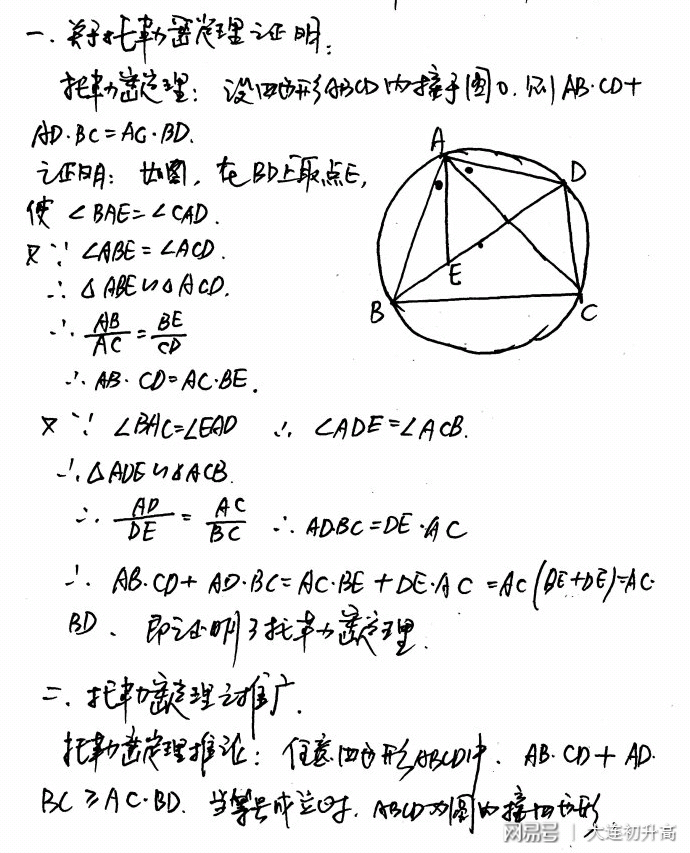 一、关于托勒密定理之证明：
托勒密定理：设四边形ABCD内接于圆O，则AB·CD+
AD·BC=AC·BD.
证明：如图，在BD上取点E，
使∠BAE=∠CAD.
又∵∠ABE=∠ACD.
∴△ABE∽△ACD.
∴AB/AC=BE/CD
∴AB·CD=AC·BE.
又∵∠BAC=∠EAD ∴∠ADE=∠ACB.
∴△ADE∽△ACB.
∴AD/DE=AC/BC ∴AD·BC=DE·AC
∴AB·CD+AD·BC=AC·BE+DE·AC=AC(BE+DE)=AC·
BD、即证明了托勒密定理.
二、托勒密定理之推广.
托勒密定理推论：任意四边形ABCD中、AB·CD+AD·
BC≥AC·BD.当等号成立时，ABCD为圆内接四边形
A
D
E
B
C
网易号 | 大连初升高